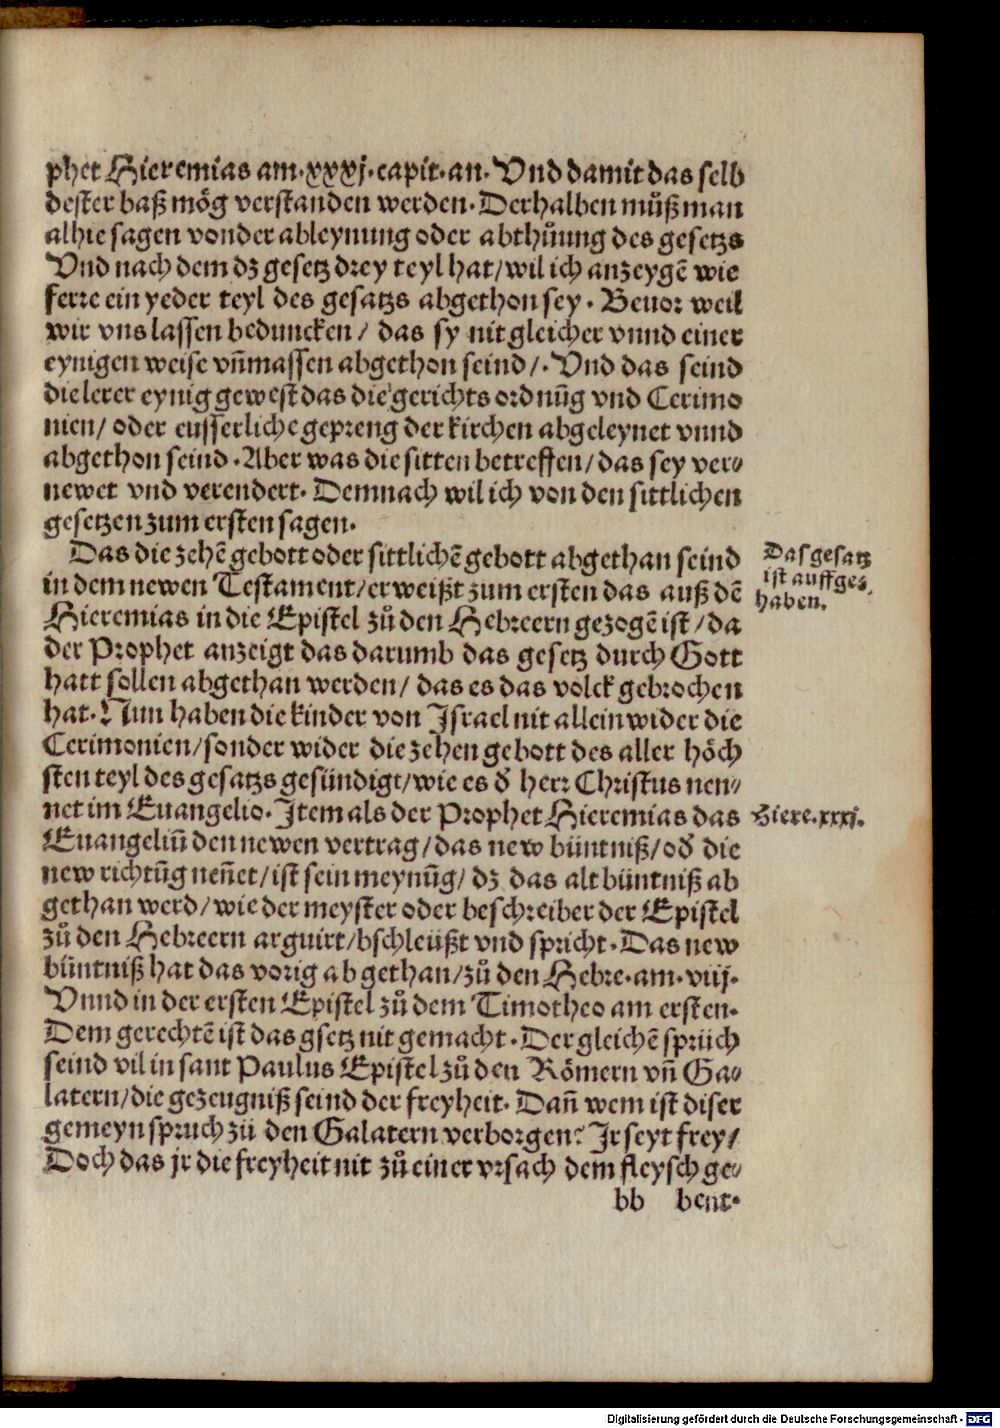 phet Hieremias am.xxxj.capit.an. Vnd damit das selb
dester baß mög verstanden werden. Derhalben můß man
alhie sagen von der ableynung oder abthůung des gesetzs
Vnd nach dem dz gesetz drey teyl hat/wil ich anzeygē wie
ferre ein yeder teyl des gesatzs abgethon sey. Beuor weil
wir vns lassen beduncken/ das sy nit gleicher vnnd einer
eynigen weise vñ massen abgethon seind/. Vnd das seind
die lerer eynig gewest das die gerichts ordnūg vnd Cerimo
nien/ oder eusserliche gepreng der kirchen abgeleynet vnnd
abgethon seind. Aber was die sitten betreffen/das sey ver⸗
newet vnd verendert. Demnach wil ich von den sittlichen
gesetzen zum ersten sagen.
Das die zehē gebott oder sittlichē gebott abgethan seind
in dem newen Testament/er weißt zum ersten das auß dē
Hieremias in die Epistel zů den Hebreern gezogē ist/da
der Prophet anzeigt das darumb das gesetz durch Gott
hatt sollen abgethan werden/ das es das volck gebrochen
hat. Nun haben die kinder von Israel nit allein wider die
Cerimonien/sonder wider die zehen gebott des aller höch
sten teyl des gesatzs gesündigt/wie es ð herr Christus nen⸗
net im Euangelio. Item als der Prophet Hieremias das
Euangeliū den newen vertrag/das new büntniß/oð die
new richtūg neñet/ist sein meynūg/ dz das alt büntniß ab
gethan werd/wie der meyster oder beschreiber der Epistel
zů den Hebreern arguirt/bschleüßt vnd spricht. Das new
büntniß hat das vorig abgethan/zů den Hebre.am.viij.
Vnnd in der ersten Epistel zů dem Timotheo am ersten.
Dem gerechtē ist das gsetz nit gemacht. Der gleichē sprüch
seind vil in sant Paulus Epistel zů den Römern vñ Ga⸗
latern/die gezeugniß seind der freyheit. Dañ wem ist diser
gemeyn spruch zů den Galatern verborgen? Ir seyt frey/
Doch das jr die freyheit nit zů einer vrsach dem fleysch ge⸗
bb bent.
Das gesatz
ist auffge⸗
haben.
Hiere.xxxj.
Digitalisierung gefördert durch die Deutsche Forschungsgemeinschaft - DFG